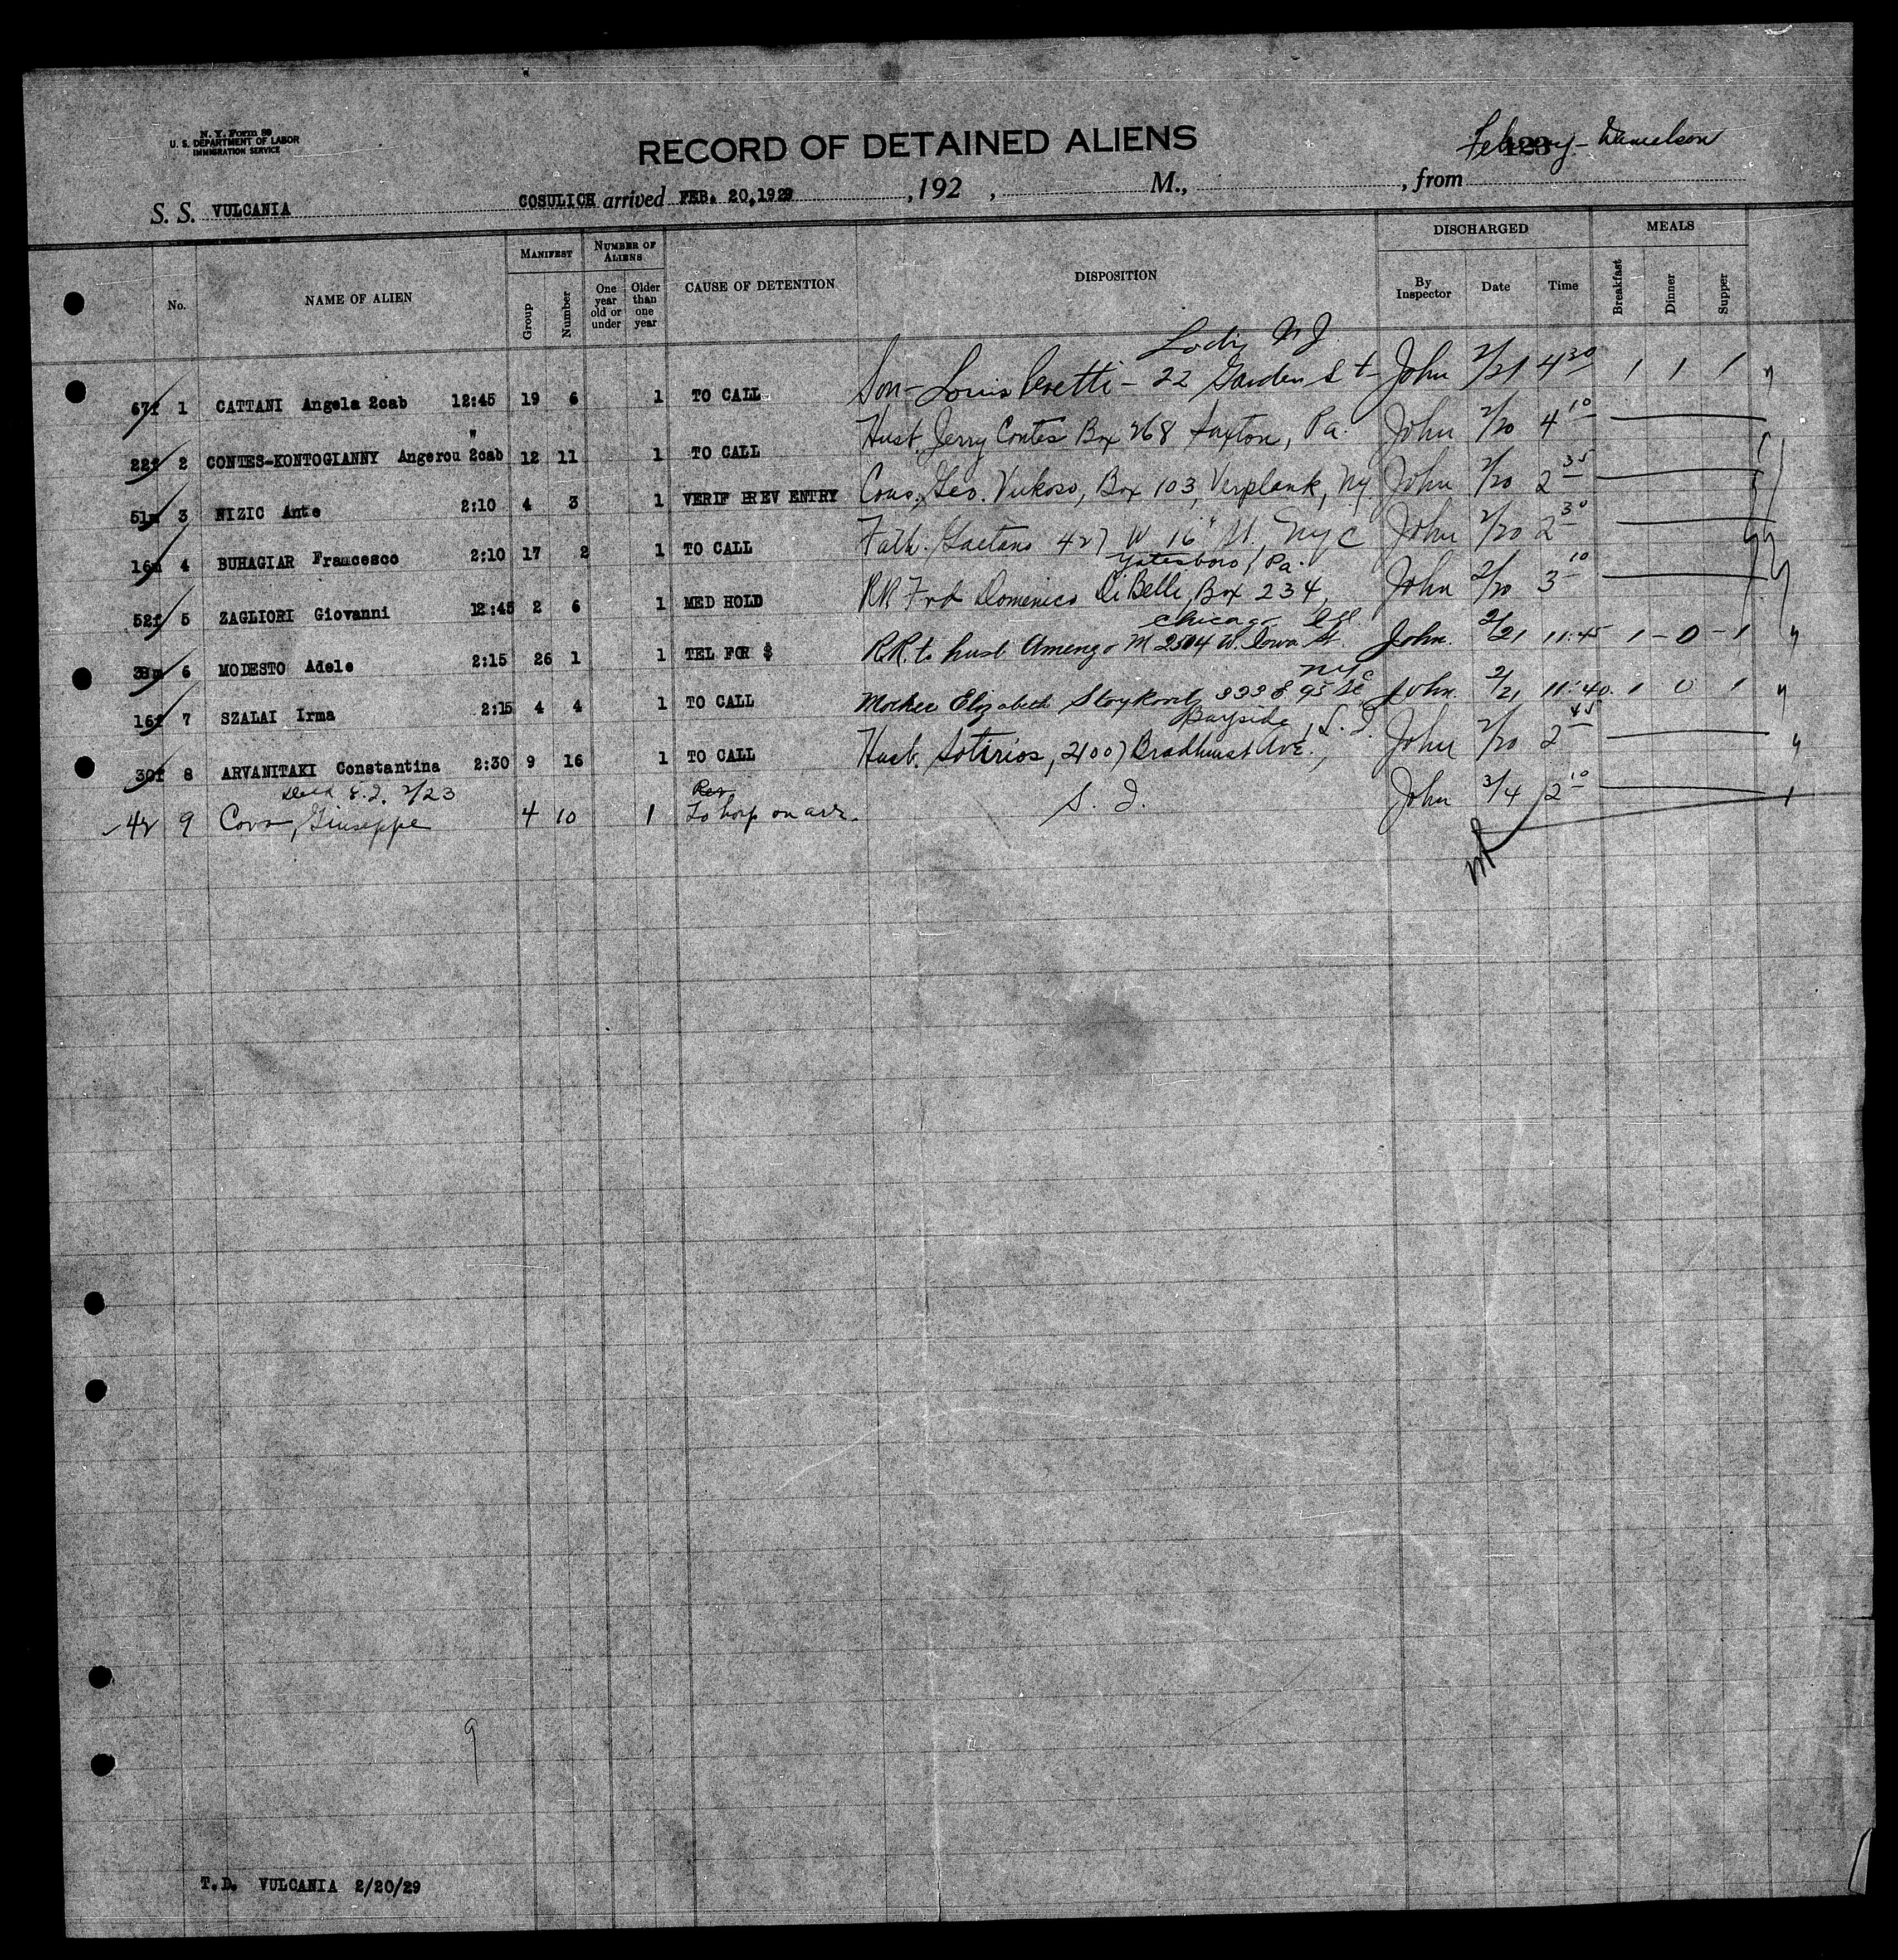 N. Y. Form 89
U. S. DEPARTMENT OF LABOR
IMMIGRATION SERVICE
RECORD OF DETAINED ALIENS
123
Danielson
S. S. VULCANIA COSULICH arrived FEB. 20, 1929 , 192 , M., , from
No. NAME OF ALIEN MANIFEST Group Number NUMBER OF ALIENS One year old or under Older than one year CAUSE OF DETENTION DISPOSITION DISCHARGED By Inspector Date Time MEALS Breakfast Dinner Supper
Lodi N J.
67f 1 CATTANI Angela 2cab 12:45 19 6 1 TO CALL Son - Louis - 22 Garden St - John 2/21 4 30 1 1 1
W
22f 2 CONTES-KONTOGIANNY Angerou 2cab 12 11 1 TO CALL Husb. Jerry Contes Box 268 Saxton, Pa. John 2/20 4 10
51m 3 NIZIC Ante 2:10 4 3 1 VERIF PREV ENTRY Cous. Geo. Vukoso, Box 103, Verplank, NY John 2/20 2 35
16m 4 BUHAGIAR Francesco 2:10 17 2 1 TO CALL Fath. Gaetano 427 W 16" St. NYC John 2/20 2 30
Yatesboro, Pa.
52f 5 ZAGLIORI Giovanni 12:45 2 6 1 MED HOLD RR Frd Domenico DiBelli, Box 234, John 2/20 3 10
Chicago Ill.
6 MODESTO Adele 2:15 26 1 1 TEL FOR $ R.R. to husb Amengo M 2504 W. Iowa St. John. 2/21 11:45 1 - 0 - 1
NYC
16f 7 SZALAI Irma 2:15 4 4 1 TO CALL Mother Elizabeth 333 E 95 St John. 2/21 11:40 1 0 1
Bayside, L. I.
30f 8 ARVANITAKI Constantina 2:30 9 16 1 TO CALL Husb. Sotirios, 21007 Bradhurst Ave., John 2/20 2 45
S. I. 2/23
42 9 Cova, Giuseppe 4 10 1 To hosp on arr. S. I. John 3/4 2 10
9
T.D. VULCANIA 2/20/29